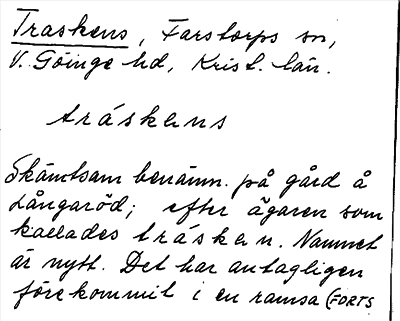 Traskens, Farstorps sn,
V. Göinge hd, Krist. län.
tráskens
Skämtsam benämn. på gård å
Långaröd; efter ägaren som
kallades trásken. Namnet
är nytt. Det har antagligen
förekommit i en ramsa (FORTS